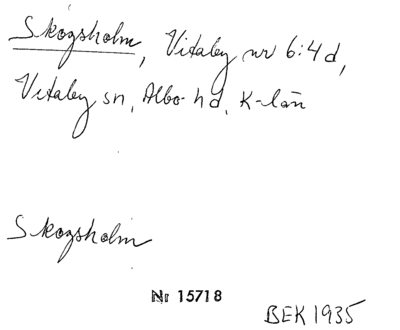 Skogsholm, Vitaby nr 6:4 d,
Vitaby sn, Albo hd, K-län
Skogsholm
Nr 15718
BEK 1935